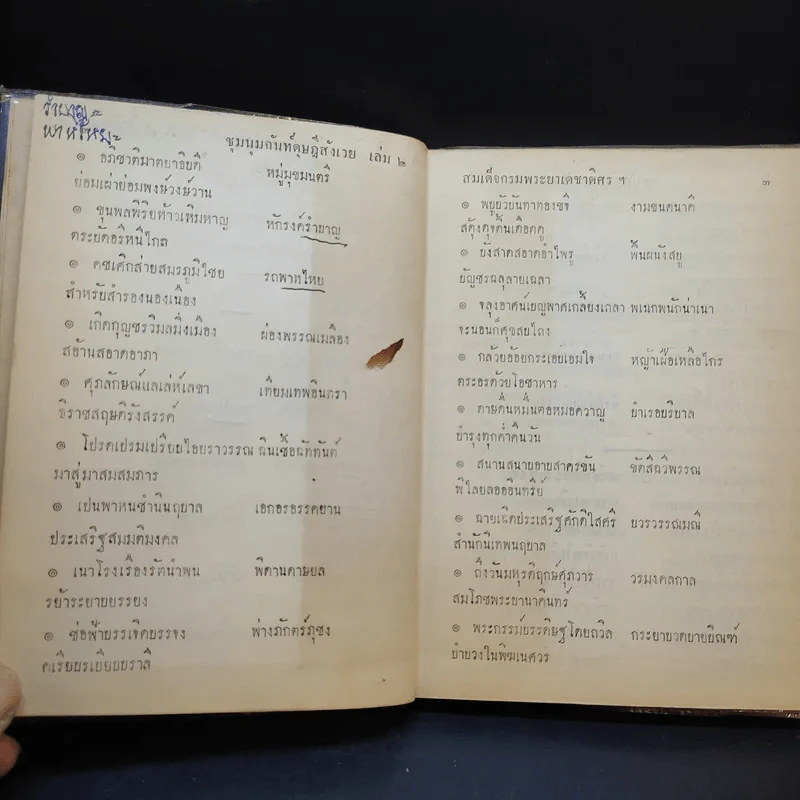 รำบาญ
พาหไหย
ชุมนุมฉันท์ดุษฎีสังเวย เล่ม ๒
๏ อภิชาติมาตยาธิบดี หมู่มุขมนตรี
ย่อมเผ่าย่อมพงษ์วงษ์วาน
๏ ขุนพลพิริยห้าวเหิมหาญ หักรงค์รำบาญ
ตระบัดอริหนีไกล
๏ คชเศิกส่ายสมรภูมิไชย รถพาหไหย
สำหรับสำรองนองเนือง
๏ เกิดกุญชรวิมลมิ่งเมือง ผ่องพรรณเมลือง
สอ้านสอาดอาภา
๏ ศุภลักษณ์แลเล่ห์เลขา เทียมเทพอินทรา
ธิราชสฤษดิรังสรรค์
๏ โปรดเปรมเปรียบไอยราวรรณ ฉินเชื้อฉัททันต์
มาสู่มาสมสมภาร
๏ เปนพาหนชำนินฤบาล เอกอรอรรคยาน
ประเสริฐสมมติมงคล
๏ เนาโรงเรืองรัตน์นำพน พิดานดาษบล
รย้าระบายบรรยง
๏ ช่อฟ้าบรรเจิดบรรจง พ่างภักตร์ภุชง
ดเรียบรเบียบบราลี
สมเด็จกรมพระยาเดชาดิศร ฯ ๓
๏ พยูบัวบันทาทองซจี งามขนดนาคี
สดุ้งดุจดิ้นเดือดดู
๏ ยังสาดสอาดอำไพรู พื้นผนังสยู
บัญชรฉลุลายเฉลา
๏ จลุงอาศน์เบญพาศเกลี้ยงเกลา พเนกพนักน่าเนา
จะนอนก็ศุขสบไถง
๏ กล้วยอ้อยกระเอบเอมใจ หญ้าเผือเหลือไกร
ตระอรด้วยโอชาหาร
๏ ดาษดื่นหมื่นตอหมอควาญ บำเรอบริบาล
บำรุงทุกค่ำคืนวัน
๏ สนานสนายอายสาครขัน ขัดสีฉวิพรรณ
พิไลยลอออินทรีย์
๏ ฉายเฉิดประเสริฐศักดิใสศรี บวรวรรณ์มณี
สำนักนิเทพนฤบาล
๏ ถึงวันมหุรดิฤกษ์ศุภวาร วรมงคลกาล
สมโภชพระยานาคินทร์
๏ พระกรรม์บรรดิษฐโดยถวิล กระบายวดบายบิณฑ์
บำบวงในพิฆเนศวร